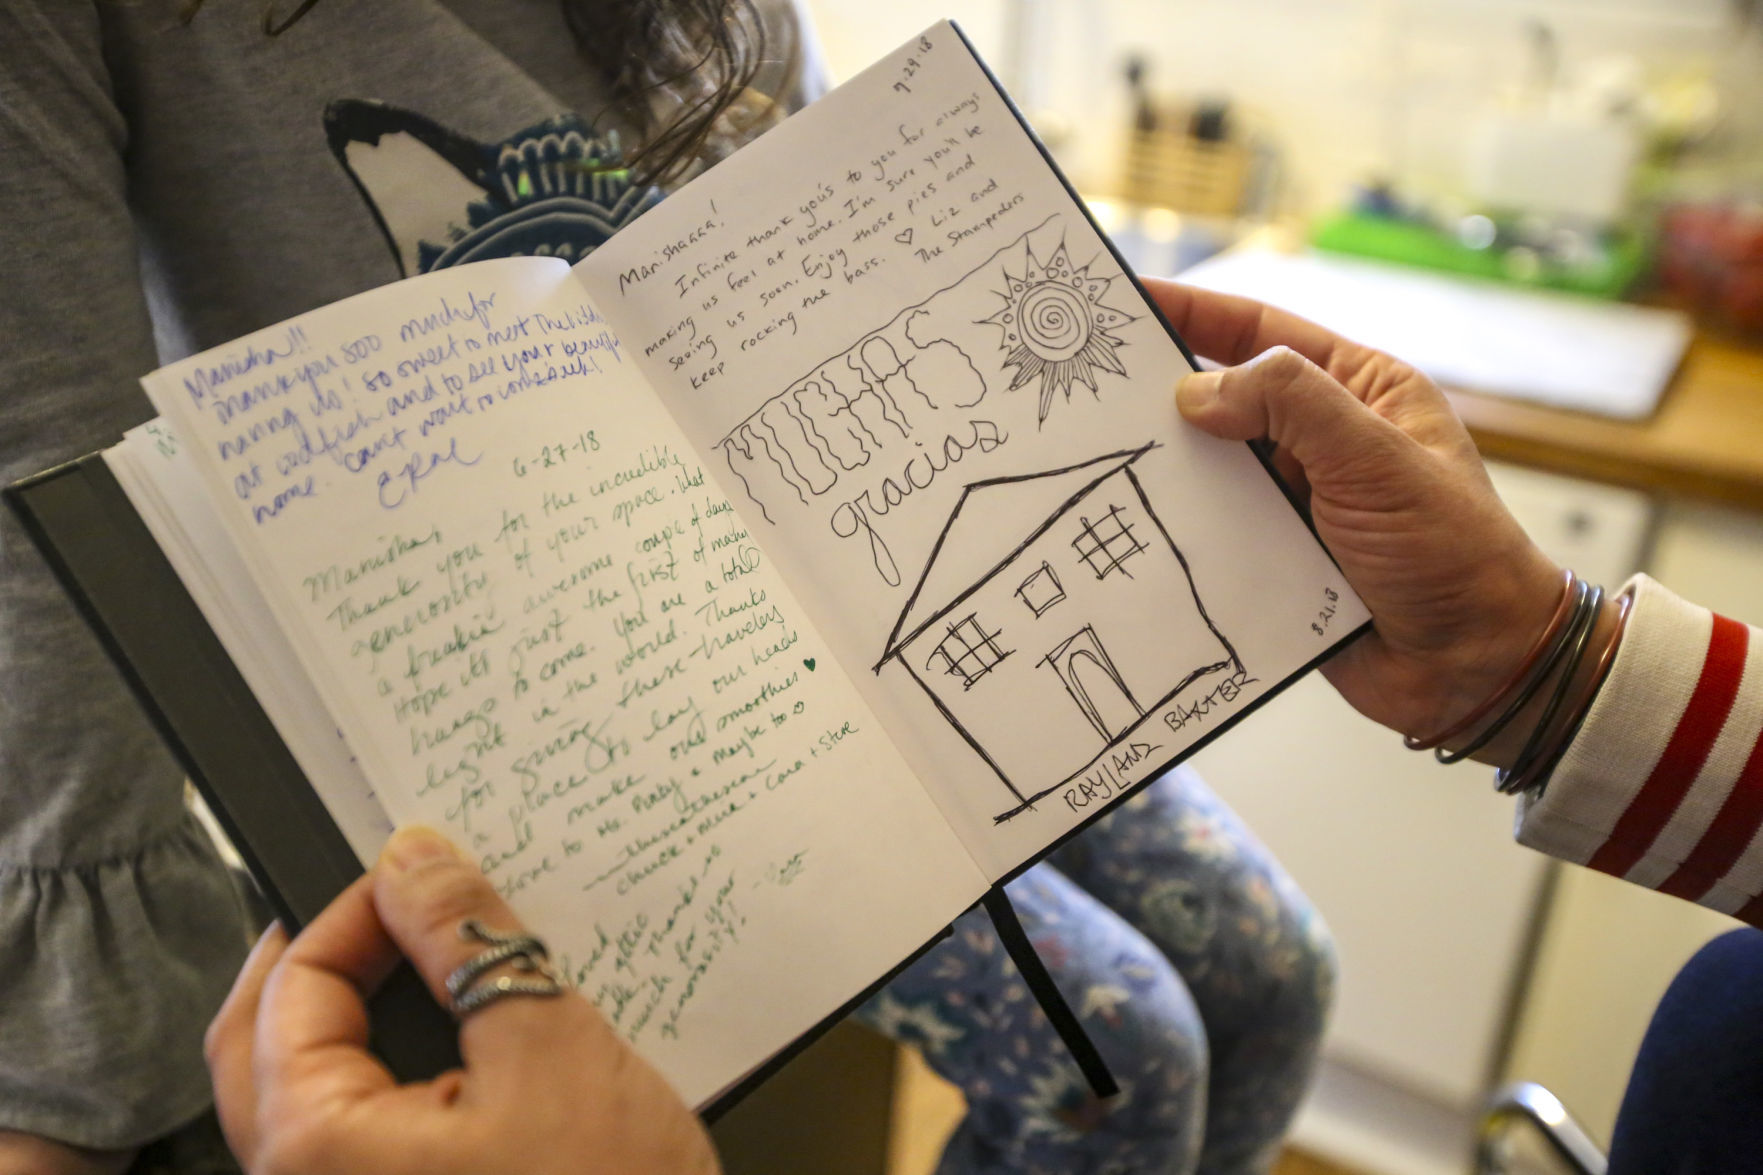 Manisha!!
Thank you soo much for
having us! So sweet to meet the kiddos
at codfish and to see your beautiful
home. Can't wait to come back!
6-27-18
Manisha,
Thank you for the incredible
generosity of your space. What
a freakin' awesome couple of days
Hope it's just the first of many
hangs to come. You are a total
light in the world. Thanks
for giving these travelers
a place to lay our heads
and make our smoothies ♥
Come to Ms. Ruby & maybe too
Chuck + + Cara + Steve
loved
attic
Thanks so
much for your
generosity!!
7.29.18
Manishaaaa!
Infinite thank yous to you for always
making us feel at home. I'm sure you'll be
seeing us soon. Enjoy those pies and
keep rocking the bass. ♡ Liz and
The Stampeders
MUCHAS
gracias
RAYLAND BAXTER
8.21.18